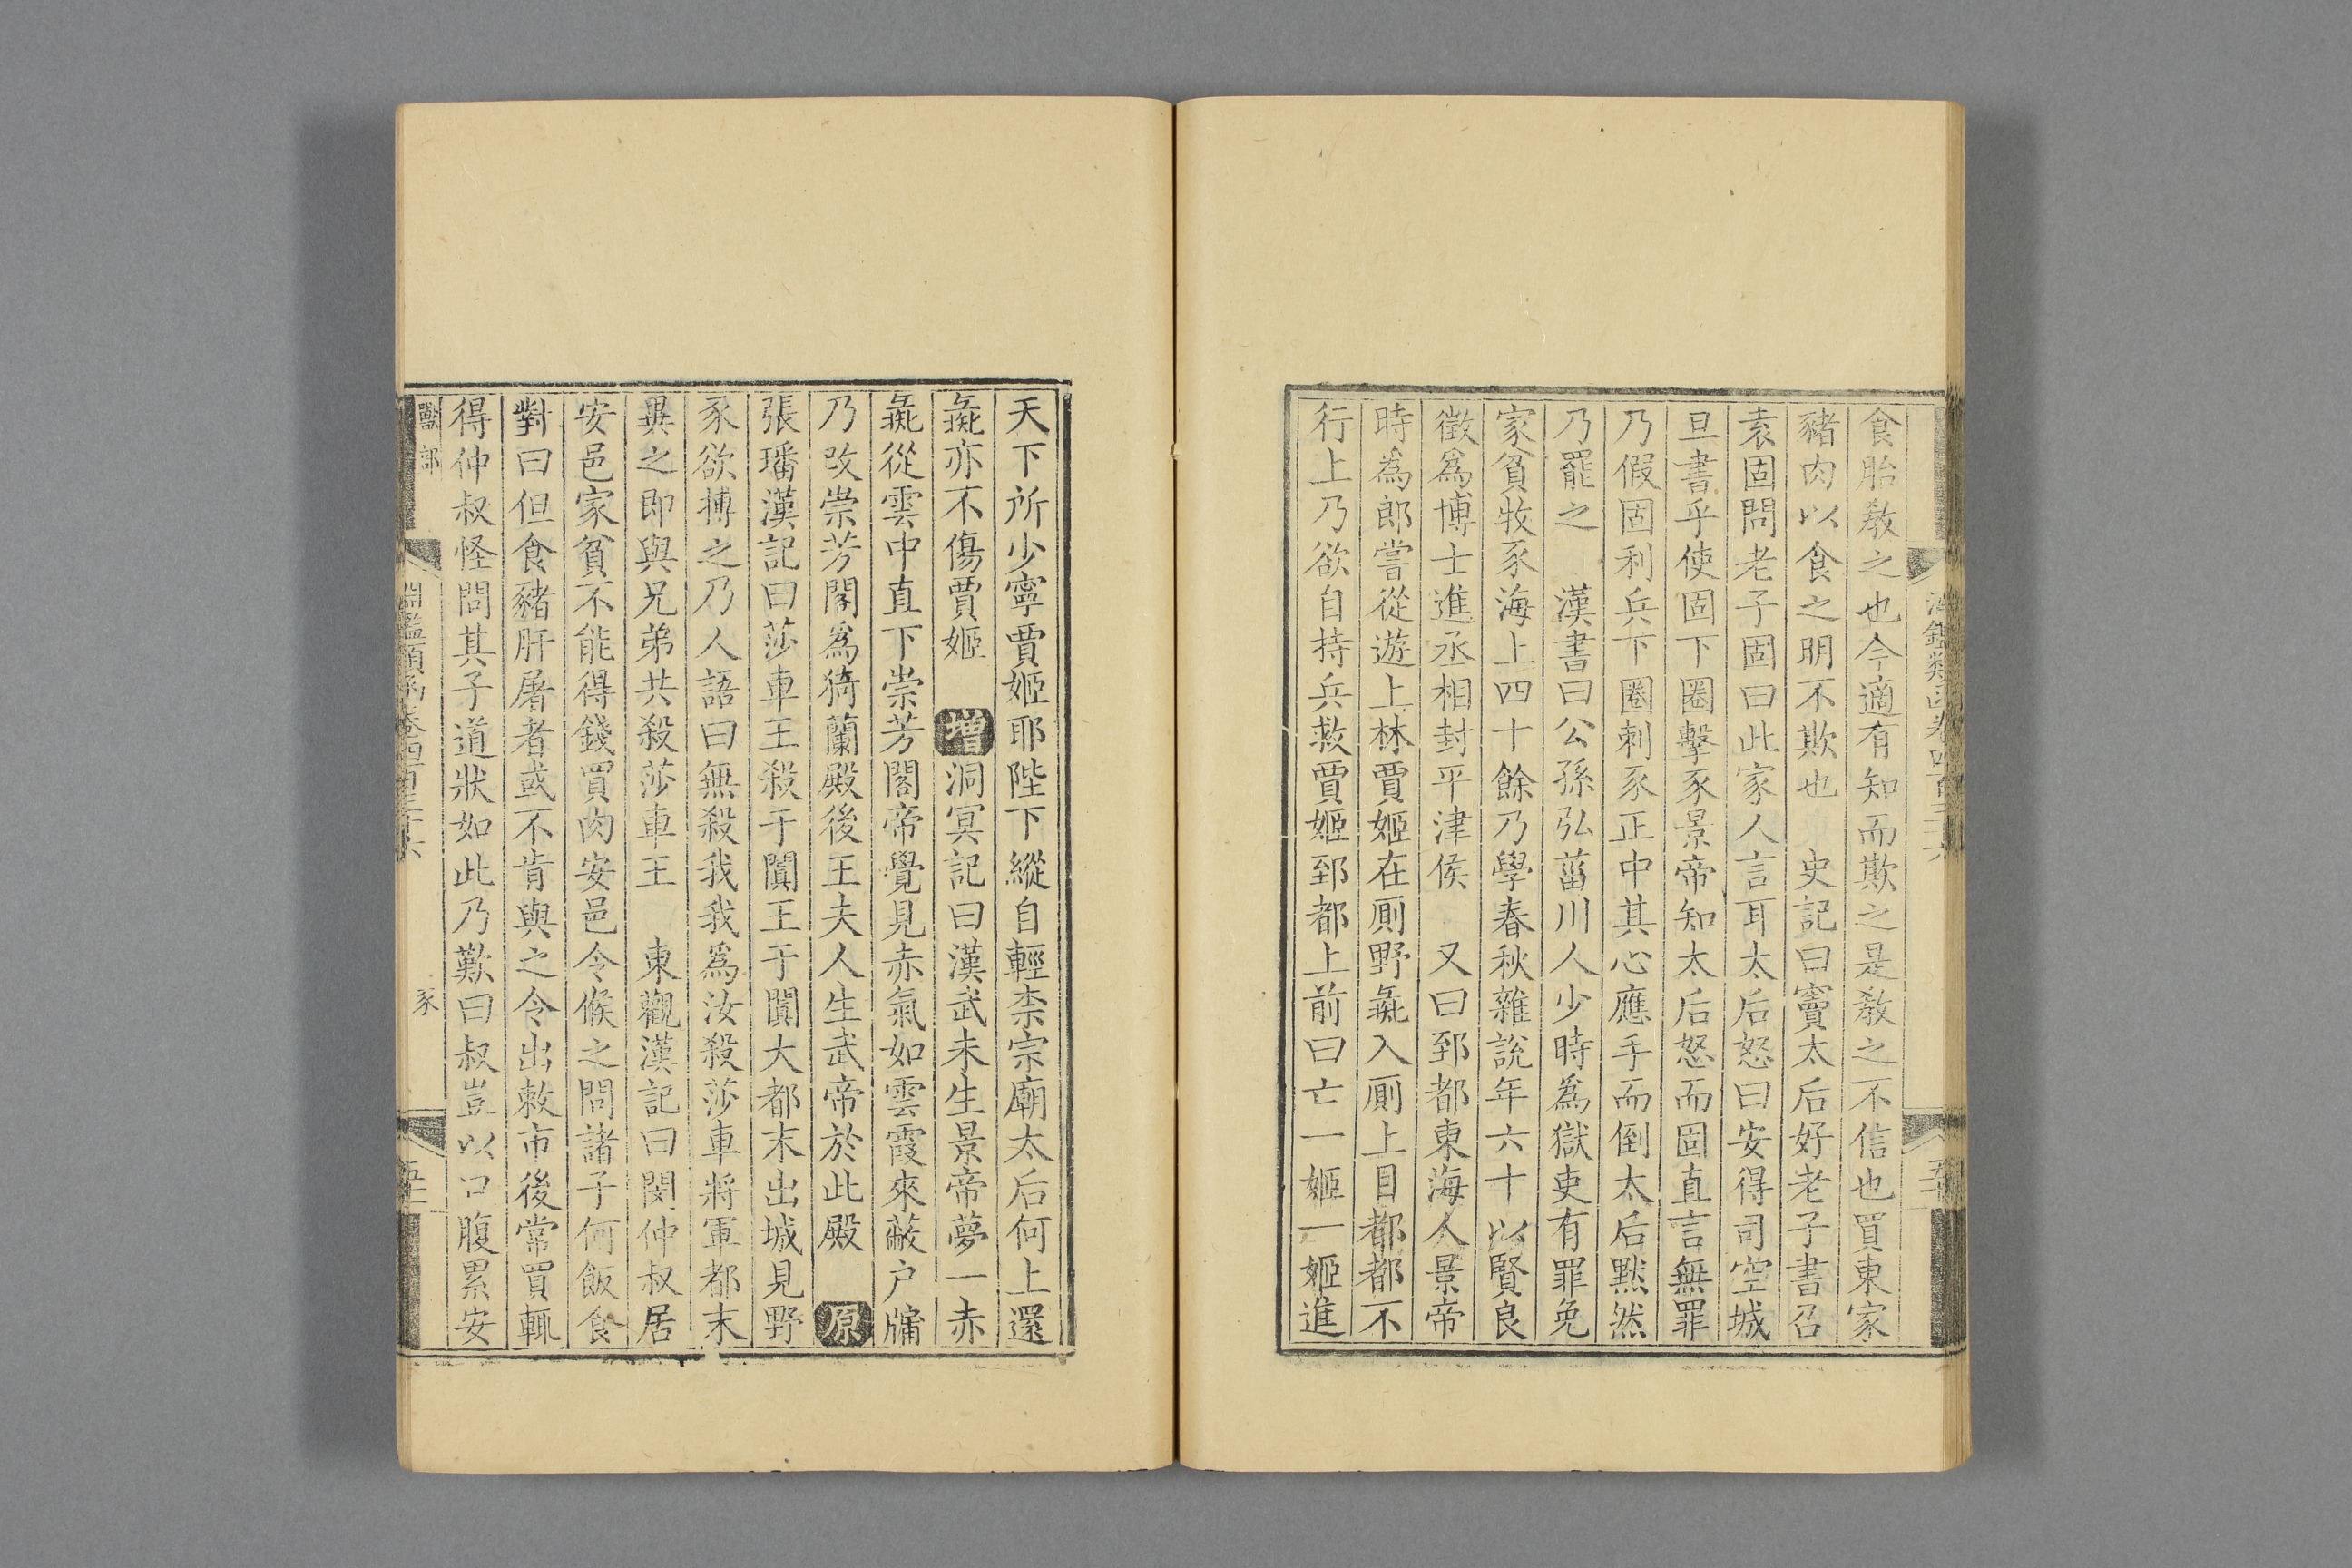 食胎敎之也今適有知而欺之是敎之不信也買東家
豬肉以食之明不欺也　史記曰竇太后好老子書召
袁固問老子固曰此家人言耳太后怒曰安得司空城
旦書乎使固下圈擊豕景帝知太后怒而固直言無罪
乃假固利兵下圈刺豕正中其心應手而倒太后黙然
乃罷之　漢書曰公孫弘菑川人少時爲獄吏有罪免
家貧牧豕海上四十餘乃學春秋雜說年六十以賢良
徵爲博士進丞相封平津侯　又曰郅都東海人景帝
時為郎嘗從遊上林賈姬在厠野彘入厠上目都都不
行上乃欲自持兵救賈姬郅都上前曰亡一姬一姬進
天下所少寧賈姬耶陛下縱自輕柰宗廟太后何上還
彘亦不傷賈姬　增洞冥記曰漢武未生景帝夢一赤
彘從雲中直下崇芳閣帝覺見赤氣如雲霞來蔽户牖
乃改崇芳閣爲猗蘭殿後王夫人生武帝於此殿　原
張璠漢記曰莎車王殺于闐王于闐大都末出城見野
豕欲搏之乃人語曰無殺我我爲汝殺莎車將軍都末
異之即與兄弟共殺莎車王　東觀漢記曰閔仲叔居
安邑家貧不能得錢買肉安邑令候之問諸子何飯食
對曰但食豬肝屠者或不肯與之令出敕市後常買輒
得仲叔怪問其子道狀如此乃歎曰叔豈以口腹累安
獸部
淵鑑類函卷四百三十六
豕